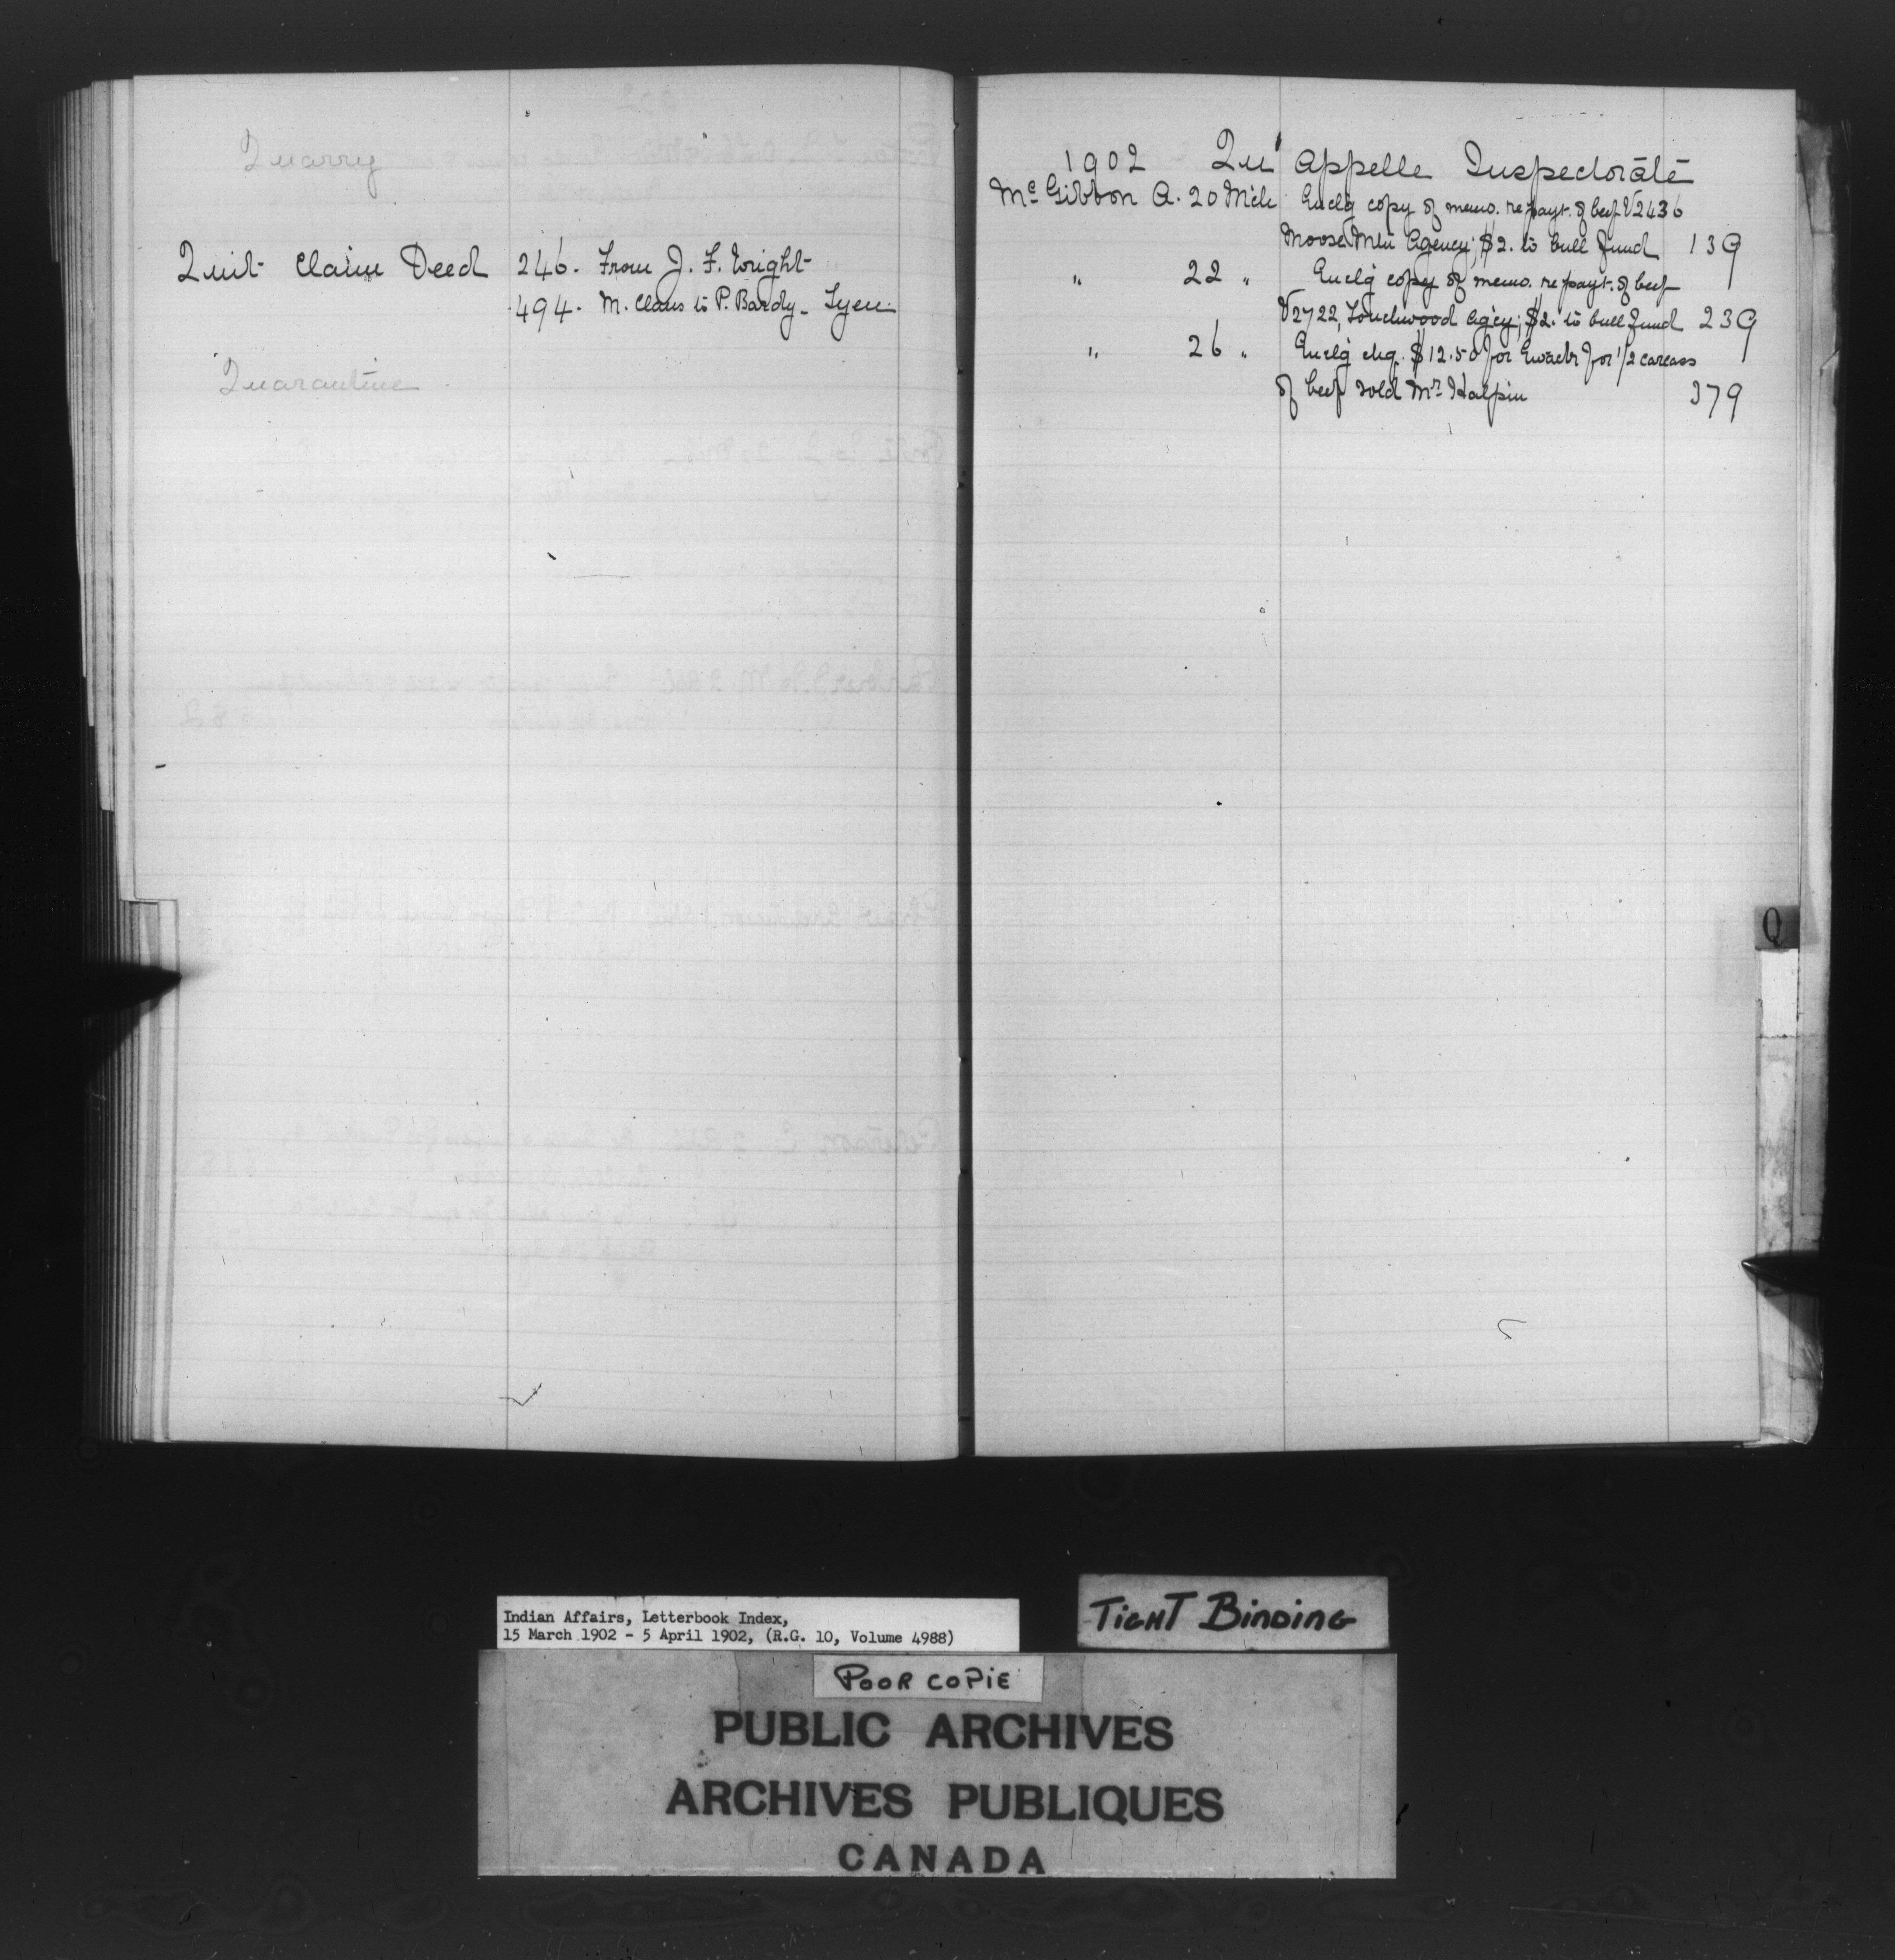 Quarry
Quit Claim Deed 246. From J. F. Wright
494. M. Claus to P. Bardy - Tyen.
Quarantine
1902 Qu'Appelle Inspectorate
McGibbon A. 20 Mch Enclg copy of memo. re payt. of beef V2436
Moose Mtn Agency; $2. to bull fund 139
" 22 " Enclg copy of memo. re payt. of beef
V2722, Touchwood Agcy; $2. to bull fund 239
" 26 " Enclg chq. $12.50 for for 1/2 carcass
of beef sold Mr Halpin 379
Q
Indian Affairs, Letterbook Index,
15 March 1902 - 5 April 1902, (R.G. 10, Volume 4988)
TIGHT BINDING
POOR COPIE
PUBLIC ARCHIVES
ARCHIVES PUBLIQUES
CANADA